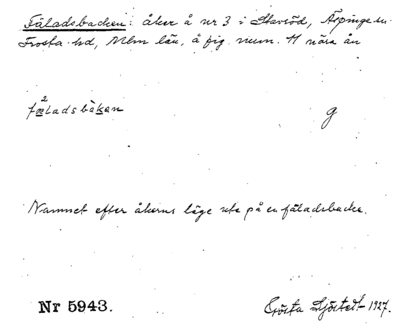 Fäladsbacken: åker å nr 3 i Stavröd, Äspinge sn
Frosta hd, Mlm län, å fig. num. 11 nära ån
fäladsbäkan g
Namnet efter åkerns läge ute på en fäladsbacke.
Nr 5943. Gösta Sjöstedt 1927.